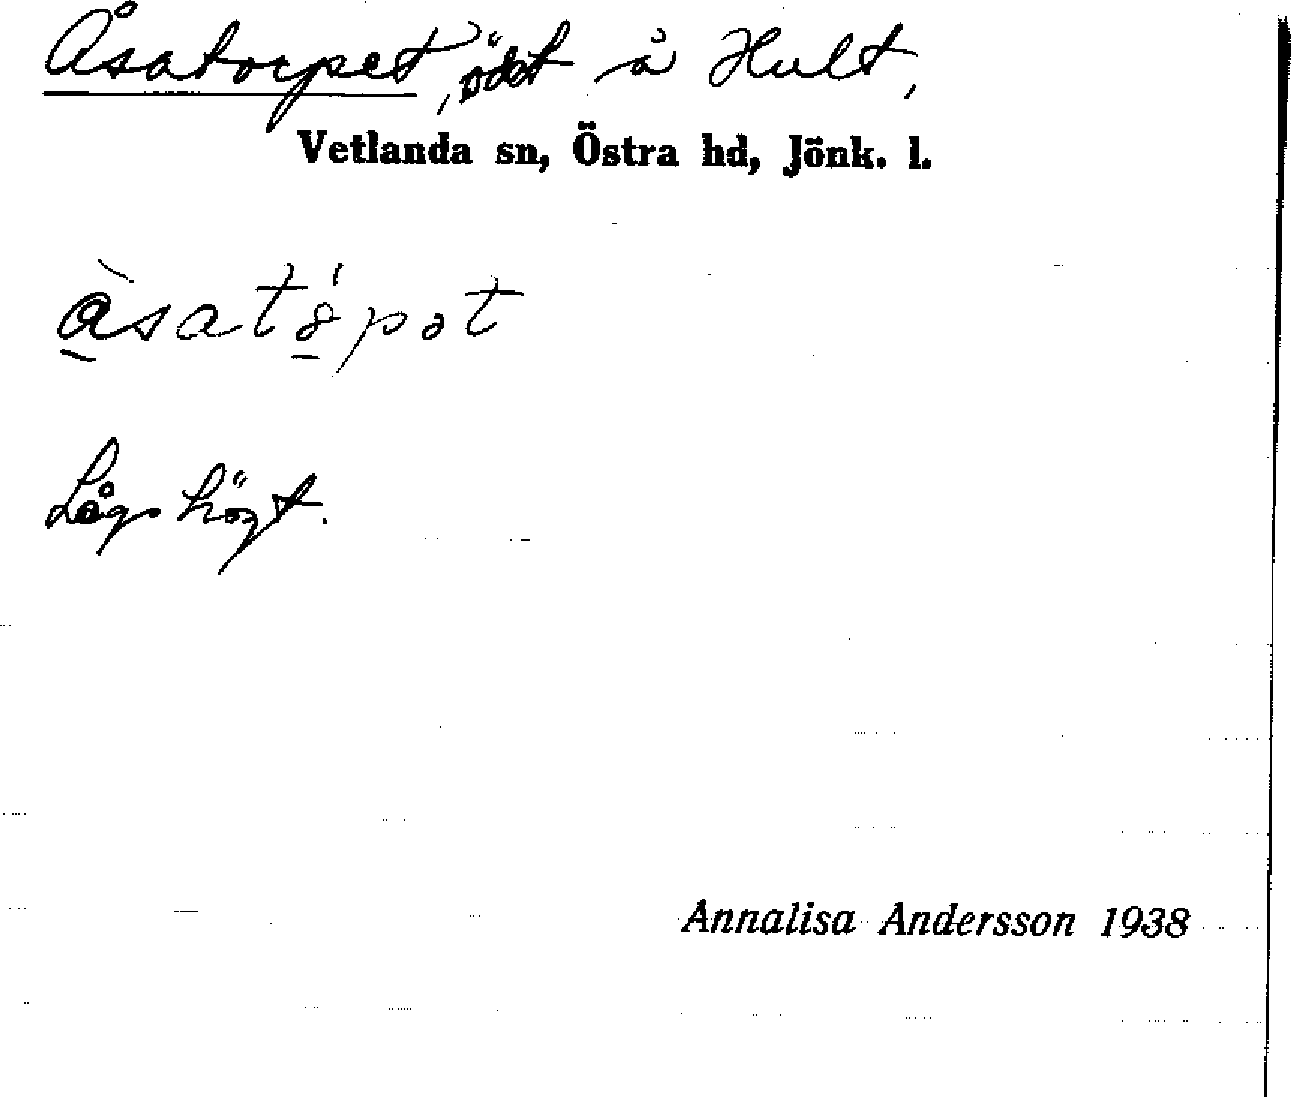 Åsatorpet, ödet å Hult,
Vetlanda sn, Östra hd, Jönk. l.
åsatöpət
Låg högt.
Annalisa Andersson 1938